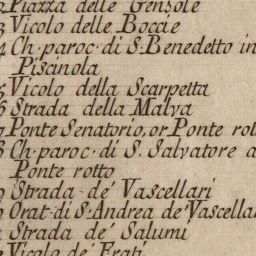 Piazza delle Gensole
3 Vicolo delle Boccie
4 Ch. paroc. di S. Benedetto in
Piscinola
5 Vicolo della Scarpetta
6 Strada della Malva
7 Ponte Senatorio, or Ponte rot
8 Ch. paroc. di S. Salvatore a
Ponte rotto
9 Strada de' Vascellari
0 Orat. di S. Andrea de' Vascella
1 Strada de' Salumi
Vicolo de' Frati